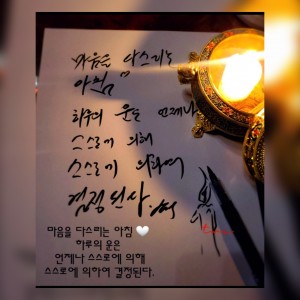 마음을 다스리는
아침
하루의 운은 언제나
스스로에 의해
스스로에 의하여
결정된다.
마음을 다스리는 아침 🤍
하루의 운은
언제나 스스로에 의해
스스로에 의하여 결정된다.